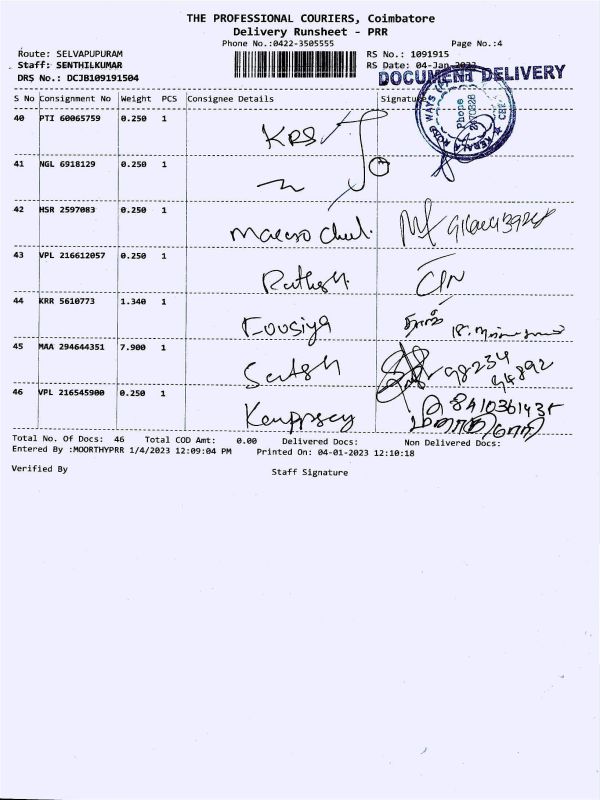 THE PROFESSIONAL COURIERS, Coimbatore
Delivery Runsheet - PRR
Phone No.:0422-3505555 Page No.:4
Route: SELVAPUPURAM RS No.: 1091915
Staff: SENTHILKUMAR RS Date: 04-Jan-2023
DRS No.: DCJB109191504 DOCUMENT DELIVERY
S No Consignment No Weight PCS Consignee Details Signature
40 PTI 60065759 0.250 1 KRS
41 NGL 6918129 0.250 1
42 HSR 2597083 0.250 1
43 VPL 216612057 0.250 1 Rathesh.
44 KRR 5610773 1.340 1 Fousiya
45 MAA 294644351 7.900 1 Satish 98234
94892
46 VPL 216545900 0.250 1
Total No. Of Docs: 46 Total COD Amt: 0.00 Delivered Docs: Non Delivered Docs:
Entered By :MOORTHYPRR 1/4/2023 12:09:04 PM Printed On: 04-01-2023 12:10:18
Verified By Staff Signature